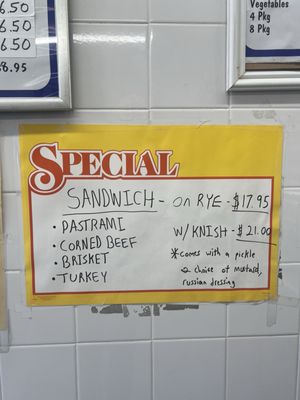 6.50
6.50
6.50
8.95
Vegetables
4 Pkg
8 Pkg
SPECIAL
SANDWICH - on RYE - $17.95
• PASTRAMI
W/ KNISH - $21.00
• CORNED BEEF
* comes with a pickle
• BRISKET
& choice of mustard,
• TURKEY
russian dressing